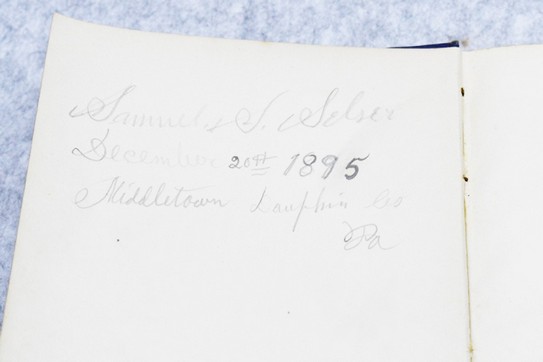 Samuel S. Selser
December 20th 1895
Middletown Dauphin Co
Pa